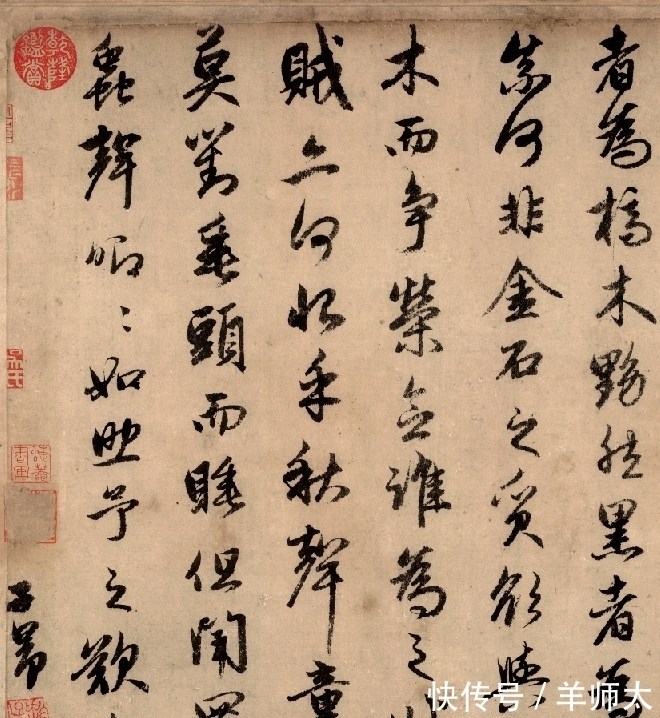 者為槁木黟然黑者為
奈何非金石之質欲與
木而爭榮念誰為之
賊亦何恨乎秋聲童
莫對垂頭而睡但聞四
蟲聲唧〻如助予之歎
子昂
乾隆鑑賞
快传号 / 羊师太